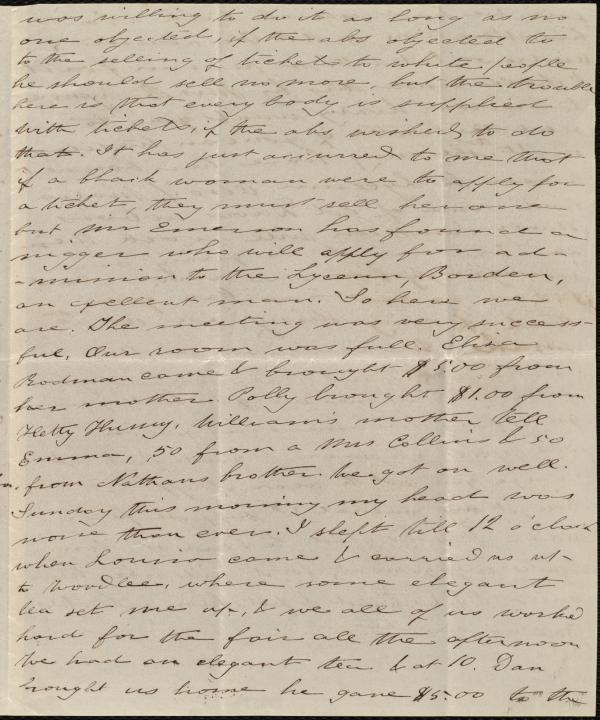 was willing to do it as long as no
one objected, if the abs objected to
to the selling of tickets to white people
he should sell no more, but the trouble
here is that every body is supplied
with tickets, if the abs wished to do
that. It has just occurred to me that
if a black woman were to apply for
a ticket, they must sell her one
but Mr Emerson has found a
nigger who will apply for ad-
-mission to the Lyceum, Borden,
an exellent man. So here we
are. The meeting was very success-
ful, Our room was full. Eliza
Rodman came & brought $5.00 from
her mother Polly brought $1.00 from
Hetty Hussey, William's mother tell
Emma, 50 from a Mrs Collins & 50
from Nathans brother. We got on well.
Sunday this morning my head was
worse than ever. I slept till 12 o'clock
when Louisa came & carried us up
to Woodlee, where some elegant
tea set me up, & we all of us worked
hard for the fair all the afternoon
We had an elegant tea & at 10. Dan
brought us home he gave $5.00 to the